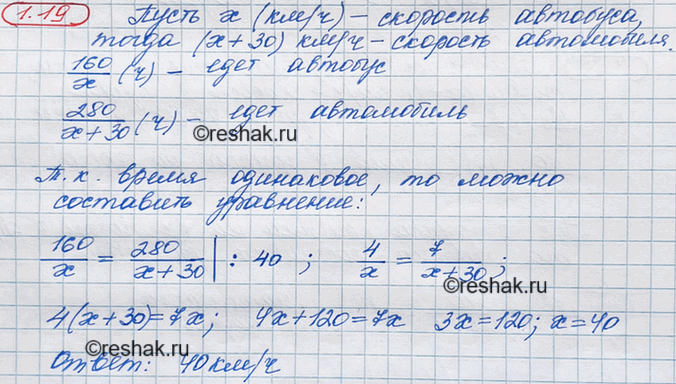 1.19 Пусть x (км/ч) – скорость автобуса,
тогда (x+30) км/ч – скорость автомобиля.
160/x (ч) – едет автобус
280/(x+30) (ч) – едет автомобиль
©reshak.ru
Т.к. время одинаковое, то можно
составить уравнение:
160/x = 280/(x+30) | : 40 ; 4/x = 7/(x+30) ;
©reshak.ru
4(x+30)=7x; 4x+120=7x 3x=120; x=40
©reshak.ru
Ответ: 40км/ч